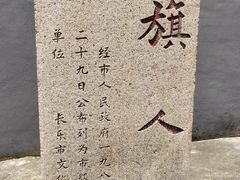 旗人
经市人民政府一九八
二十九日公布列为市级
单位
长乐市文化